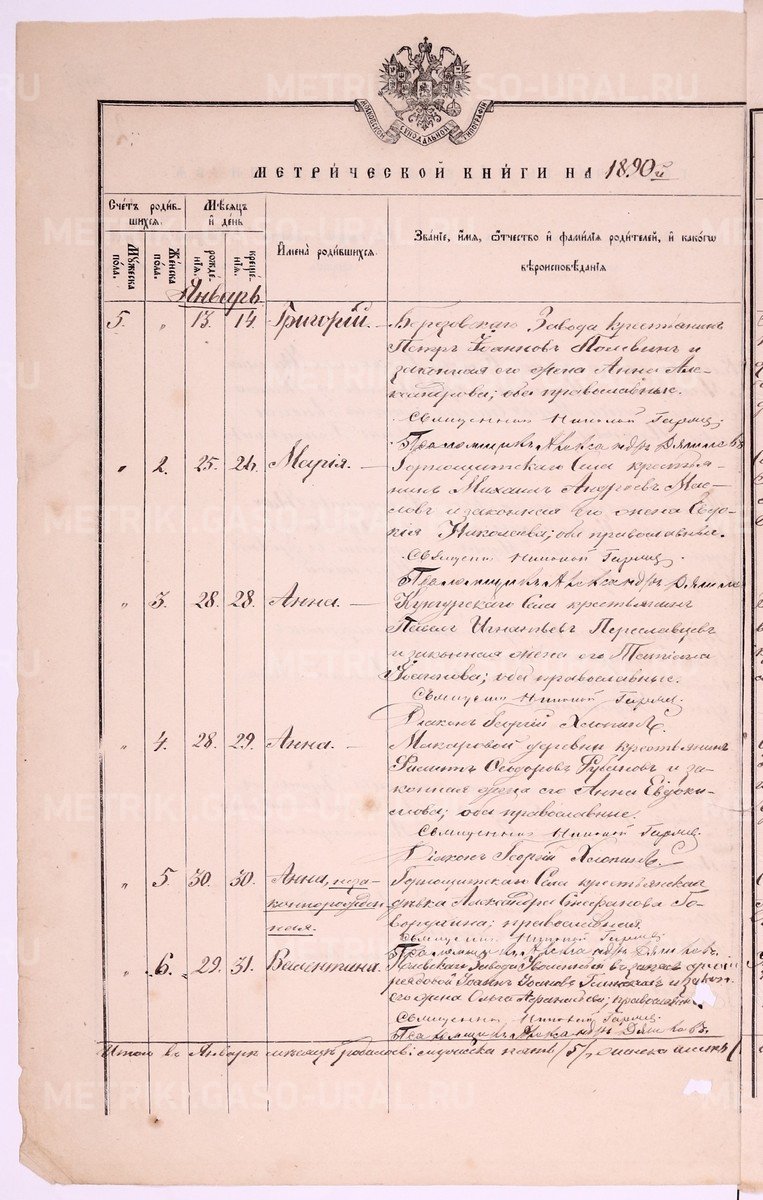 МЕТРИЧЕСКОЙ КНИГИ НА 1890й
Счетъ родив-
шихся.
Мѣсяцъ
и день
Мужеска
пола.
Женска
пола.
рожде-
нія.
креще-
нія.
Имена родившихся.
Званіе, имя, отчество и фамилія родителей, и какого
вѣроисповѣданія
Январь.
5. „ 13. 14. Григорій. — Березовскаго Завода крестьянинъ
Петръ Іоанновъ Полевинъ и
законная его жена Анна Але-
ксандрова; оба православные.
Священникъ Николай
Псаломщикъ Александръ Дягилевъ
„ 2. 25. 26. Марія. — Горнощитскаго Села крестья-
нинъ Михаилъ Андреевъ Мас-
ловъ и законная его жена Евдо-
кія Николаева; оба православные.
Священникъ Николай
Псаломщикъ Александръ
„ 3. 28. 28. Анна. — Кунгурскаго Села крестьянинъ
Павелъ Игнатьевъ Переславцевъ
и законная жена его Татіана
Іоаннова; оба православные.
Священникъ Николай
Діаконъ Георгій Хлопинъ.
„ 4. 28. 29. Анна. — Макаровой деревни крестьянинъ
Филиппъ Ѳеодоровъ и за-
конная жена его Анна Евдоки-
мова; оба православные.
Священникъ Николай
Діаконъ Георгій Хлопинъ.
„ 5. 30. 30. Анна, неза-
коннорожден-
ная.
Горнощитскаго Села крестьянская
дѣвка Александра Стефанова Го-
ворухина; православная.
Священникъ Николай
Псаломщикъ Александръ
„ 6. 29. 31. Валентина. Завода Уволенный въ запасъ арміи
рядовой Іоаннъ и закон.
его жена Ольга православн.
Священникъ Николай
Псаломщикъ Александръ
Итого въ Январѣ мѣсяцѣ родилось: мужеска пять /5/, женска шесть /